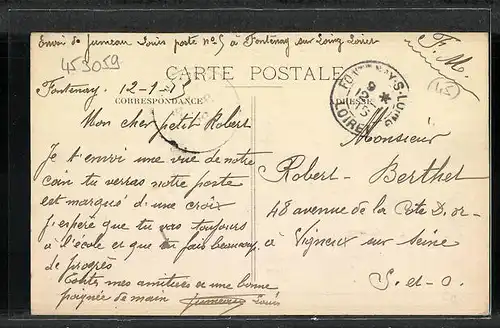 Envoi de Jumeau Louis poste no 5 à Fontenay sur Loing Loiret
F. M.
453059
CARTE POSTALE
45
Fontenay. 12-1-15
CORRESPONDANCE
ADRESSE
FONTENAY-S-LOING
9
12-1
15
LOIRET
Mon cher petit Robert
Je t'envoi une vue de notre
coin tu verras notre poste
est marqué d'une croix
J'espère que tu vas toujours
à l'école et que tu fais beaucoup
de progrès
Toutes mes amitiées et une bonne
poignée de main Jumeau Louis
Monsieur
Robert - Berthet
48 avenue de la Côte D'or -
à Vigneux sur Seine
S-et-O.